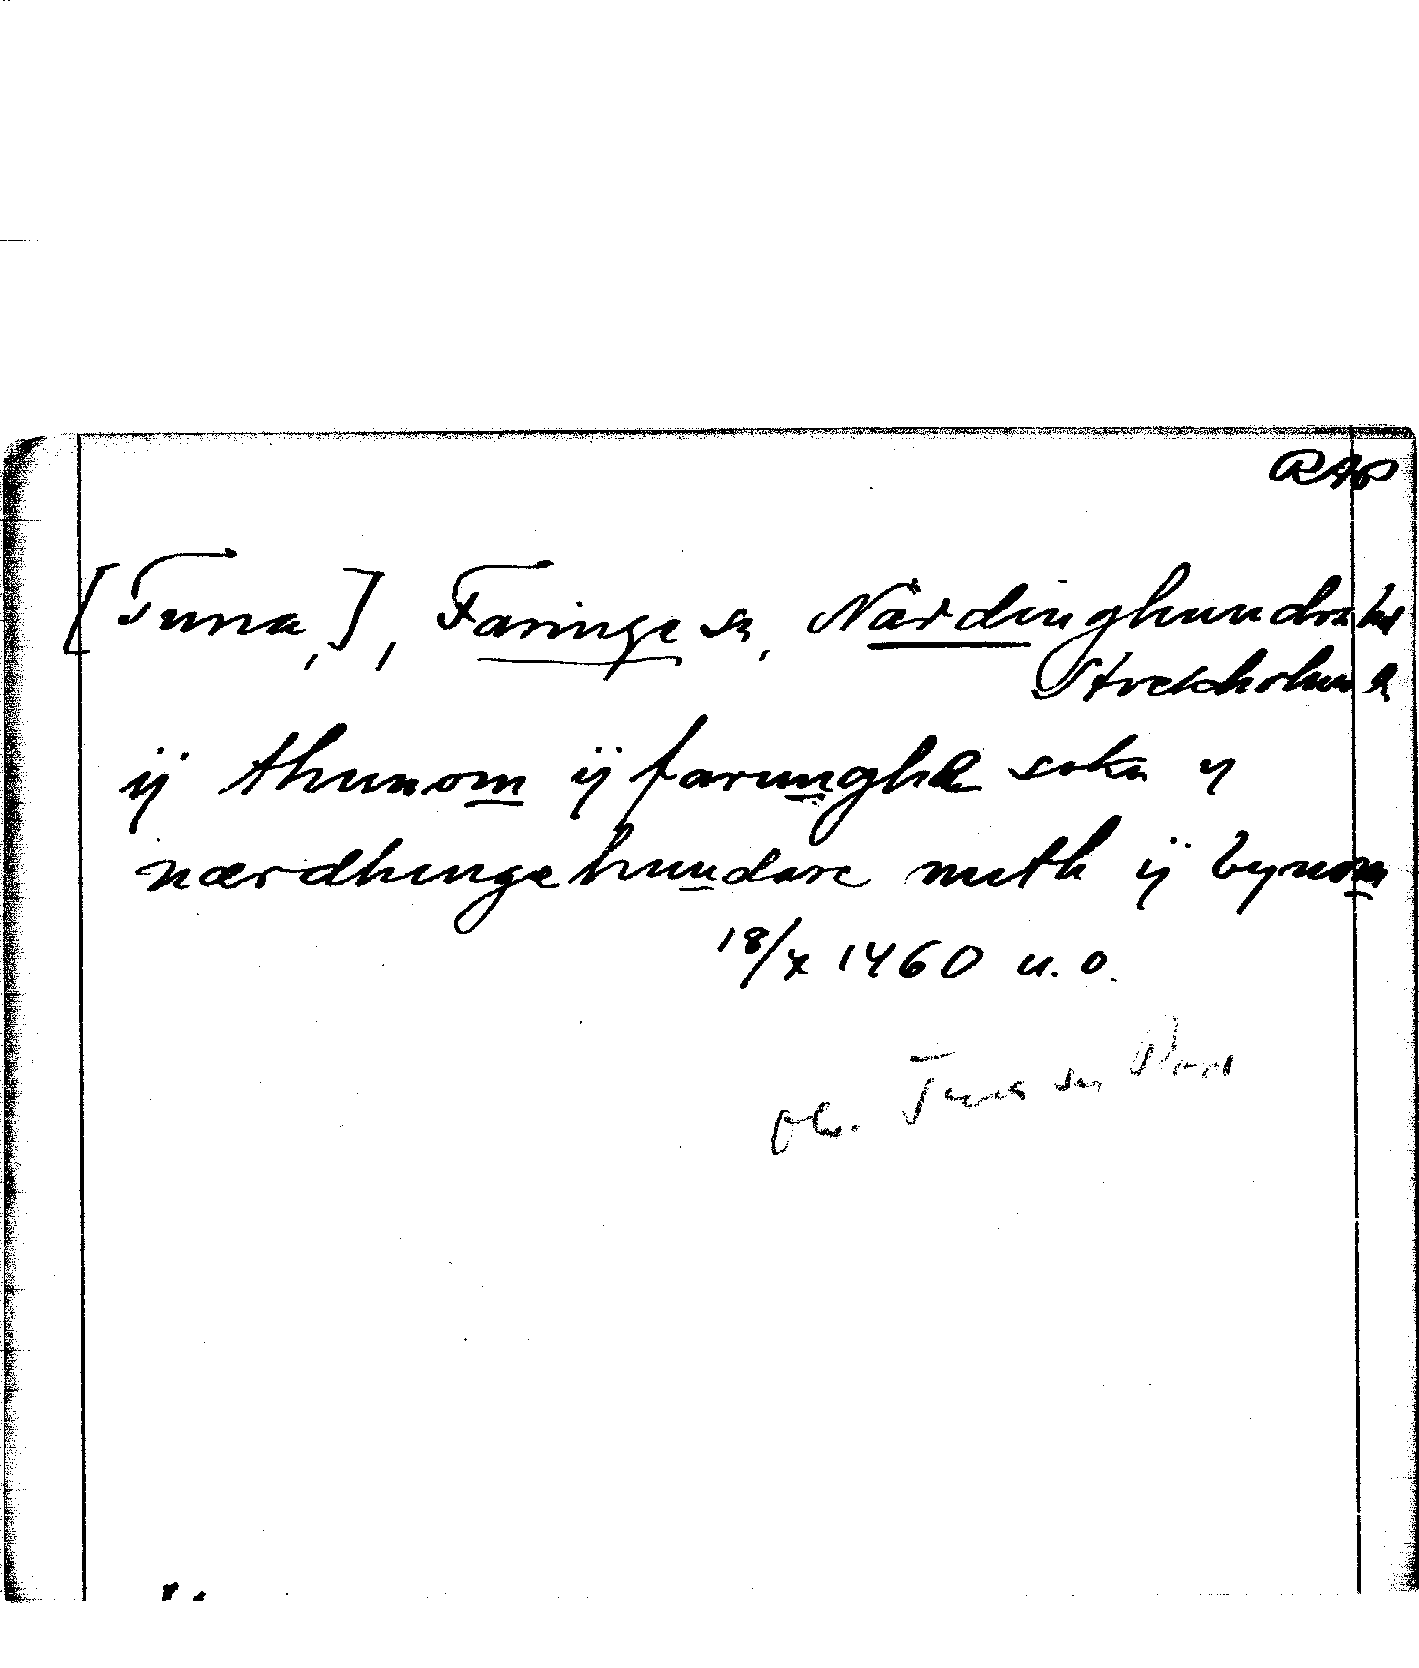 RAP
[Tuna,], Faringe sn, Närdinghundra hd
Stockholms l
ij thunom ij farungha sokn y
nærdhungehundare meth ij bynom
18/x 1460 u.o.
Tuna sn